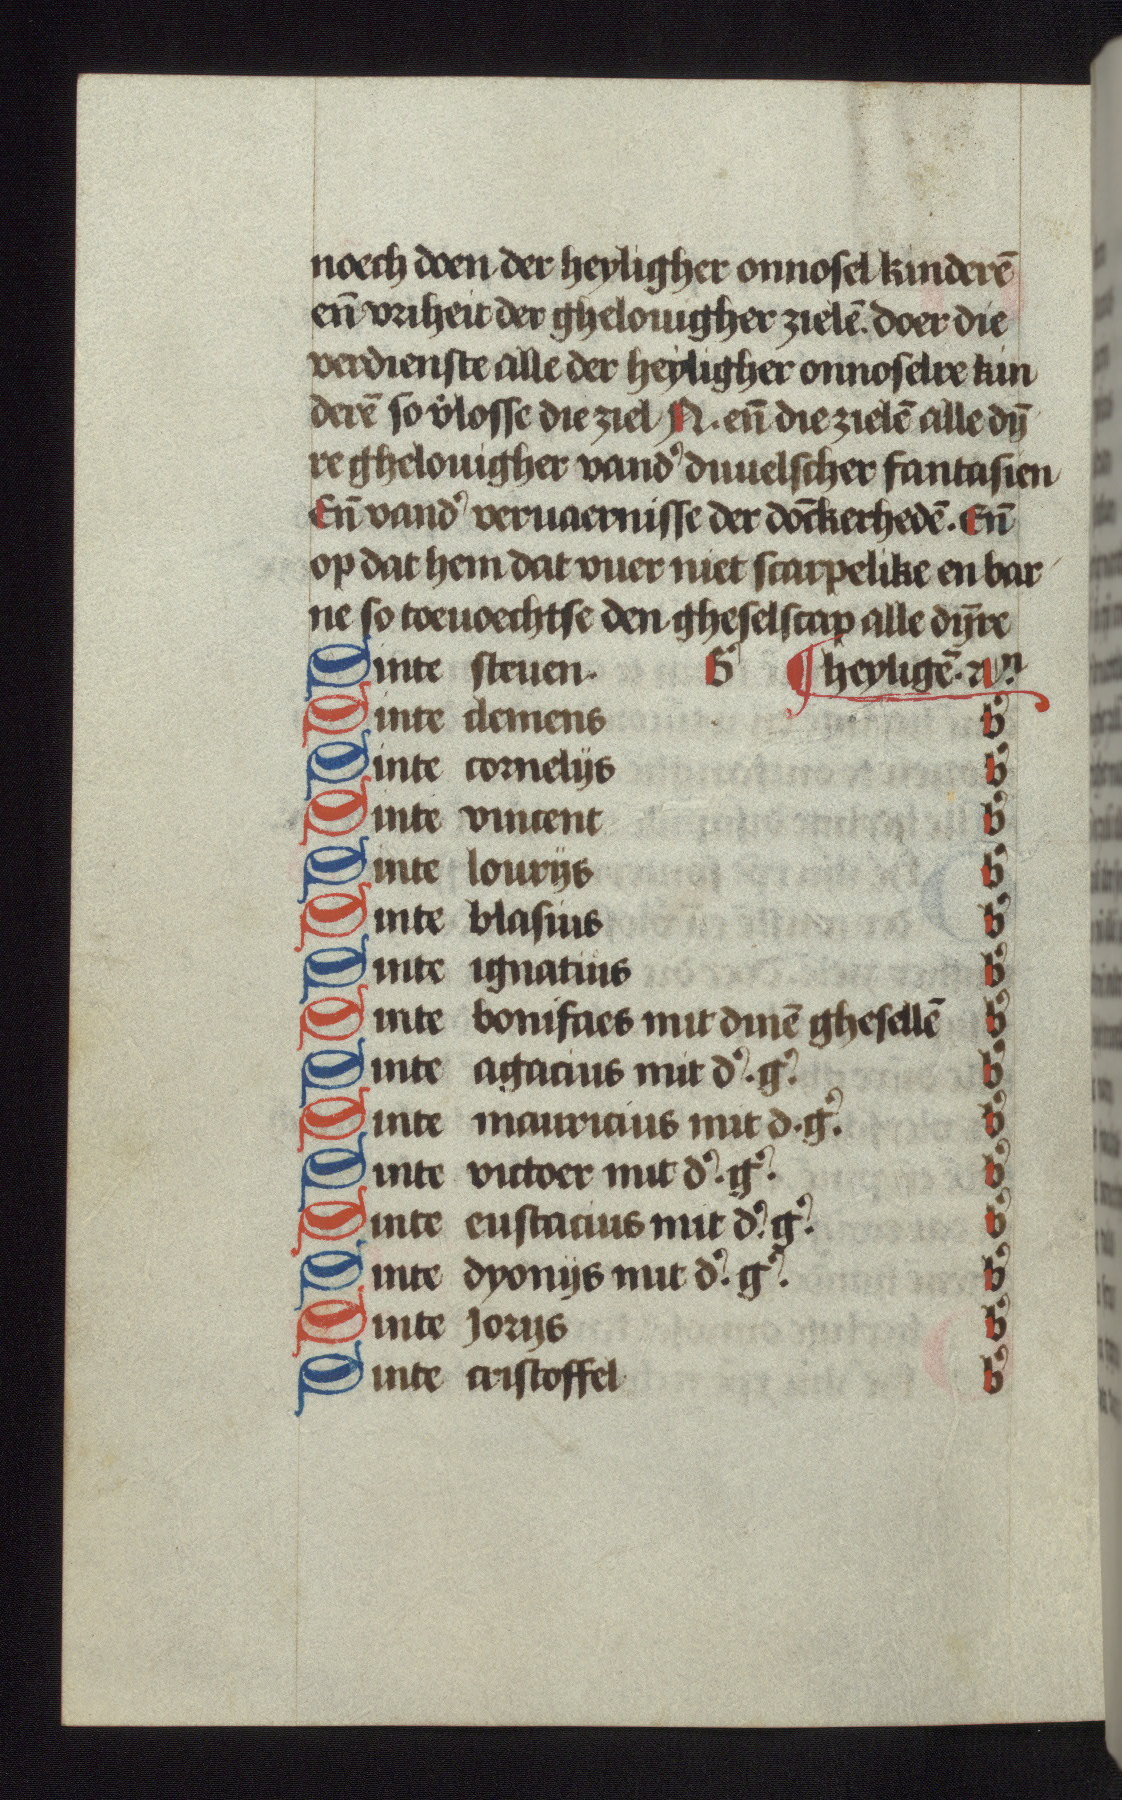 noech doen der heyligher onnosel kinderē
en̄ vriheit der ghelouigher zielē. doer die
verdienste alle der heyligher onnoselre kin
derē so v̓losse die ziel N. en̄ die zielē alle dȳ
re ghelouigher vand̓ duuelscher fantasien
En̄ vand̓ veruaernisse der dōckerhedē. En̄
op dat hem dat vuer niet scarpelike en bar
ne so toeuoechtse den gheselscap alle dȳre
Sinte steuen. B̓ heyligē.
Sinte clemens b̓
Sinte cornelijs b̓
Sinte vincent b̓
Sinte lourijs b̓
Sinte blasius b̓
Sinte ignatius b̓
Sinte bonifaes mit dinē ghesellē b̓
Sinte agacius mit d̓. g̓. b̓
Sinte mauricius mit d. g̓. b̓
Sinte victoer mit d̓. g̓. b̓
Sinte eustacius mit d̓. g̓. b̓
Sinte dyonijs mit d̓. g̓. b̓
Sinte Jorijs b̓
Sinte cristoffel b̓